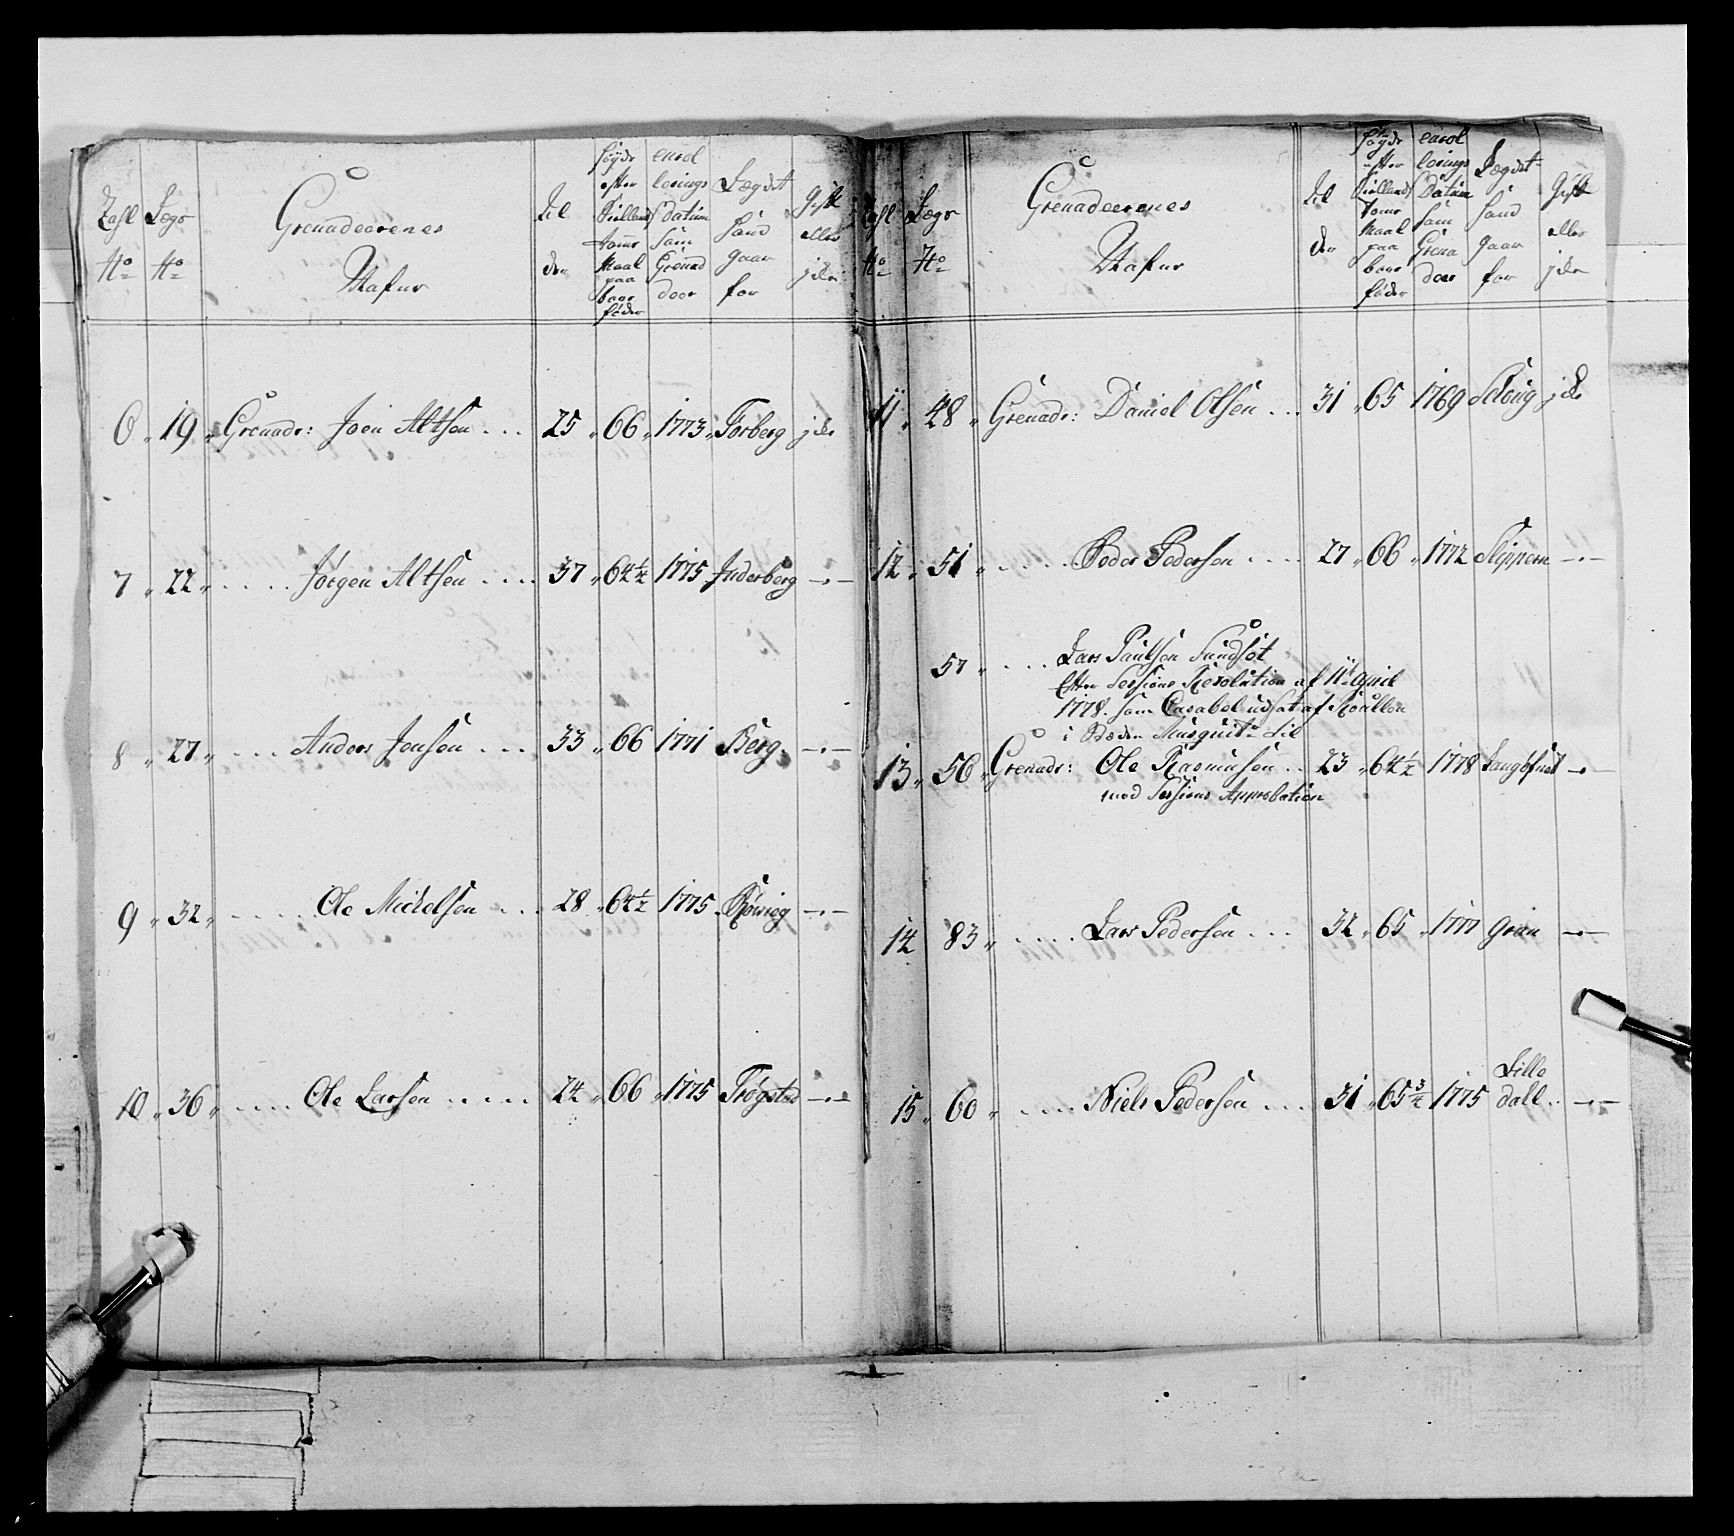 Tahl No
Lægs No
Grenadeerenes
Nafne
Alder
Høyde efter Siellands Tomme Maal paa bare fødder
enrol lerings datum som Grenad deer
Lægdet hand gaar for
Gift eller ickе
6 " 19 " Grenadr: Joen Altsen . . . 25 " 66 " 1773 " Torberg icke
7 " 22 " . . . . Jørgen Altsen . . . . 37 " 64 1/2 1775 Inderberg — " —
8 " 27 " . . . . Anders Jensen . . . 33 " 66 1771 Berg . — " —
9 " 32 " . . . . . Ole Michelsen . . . 28 " 64 1/2 1775 . — " —
10 " 36 " . . . . . Ole Larsen . . . . . 24 " 66 " 1775 Trøgsted — " —
Tahl No
Lægs No
Grenadeerenes
Nafne
Alder
Høyde efter Siellands Tomme Maal paa bare fødder
enrol lerings Datum som Grena deer
Lægdet hand gaar for
Gift eller icke
11 " 48 " Grenadr: Daniel Olsen . . . 31 " 65 1769 icke
12 " 51 " . . . . . Peder Pedersen . . . . 27 " 66 " 1772 Slippern — " —
57 " . . . . Lars Paulsen Sundsøt
Efter Sessions Resolution af 11t april
1778. som Capabel udsat af Roullen
i Steden Musquitr til
13 " 56 " Grenadr: Ole Rasmusen . . 23 " 64 1/2 1778 — " —
med Sessions Approbation
14 83 " . . . . . Lars Pedersen . . . 32 " 65 " 1777 Gran — " —
Lille
15 " 60 " . . . . . Niels Pedersen . . . 31 " 65 3/4 1775 dall . . — " —